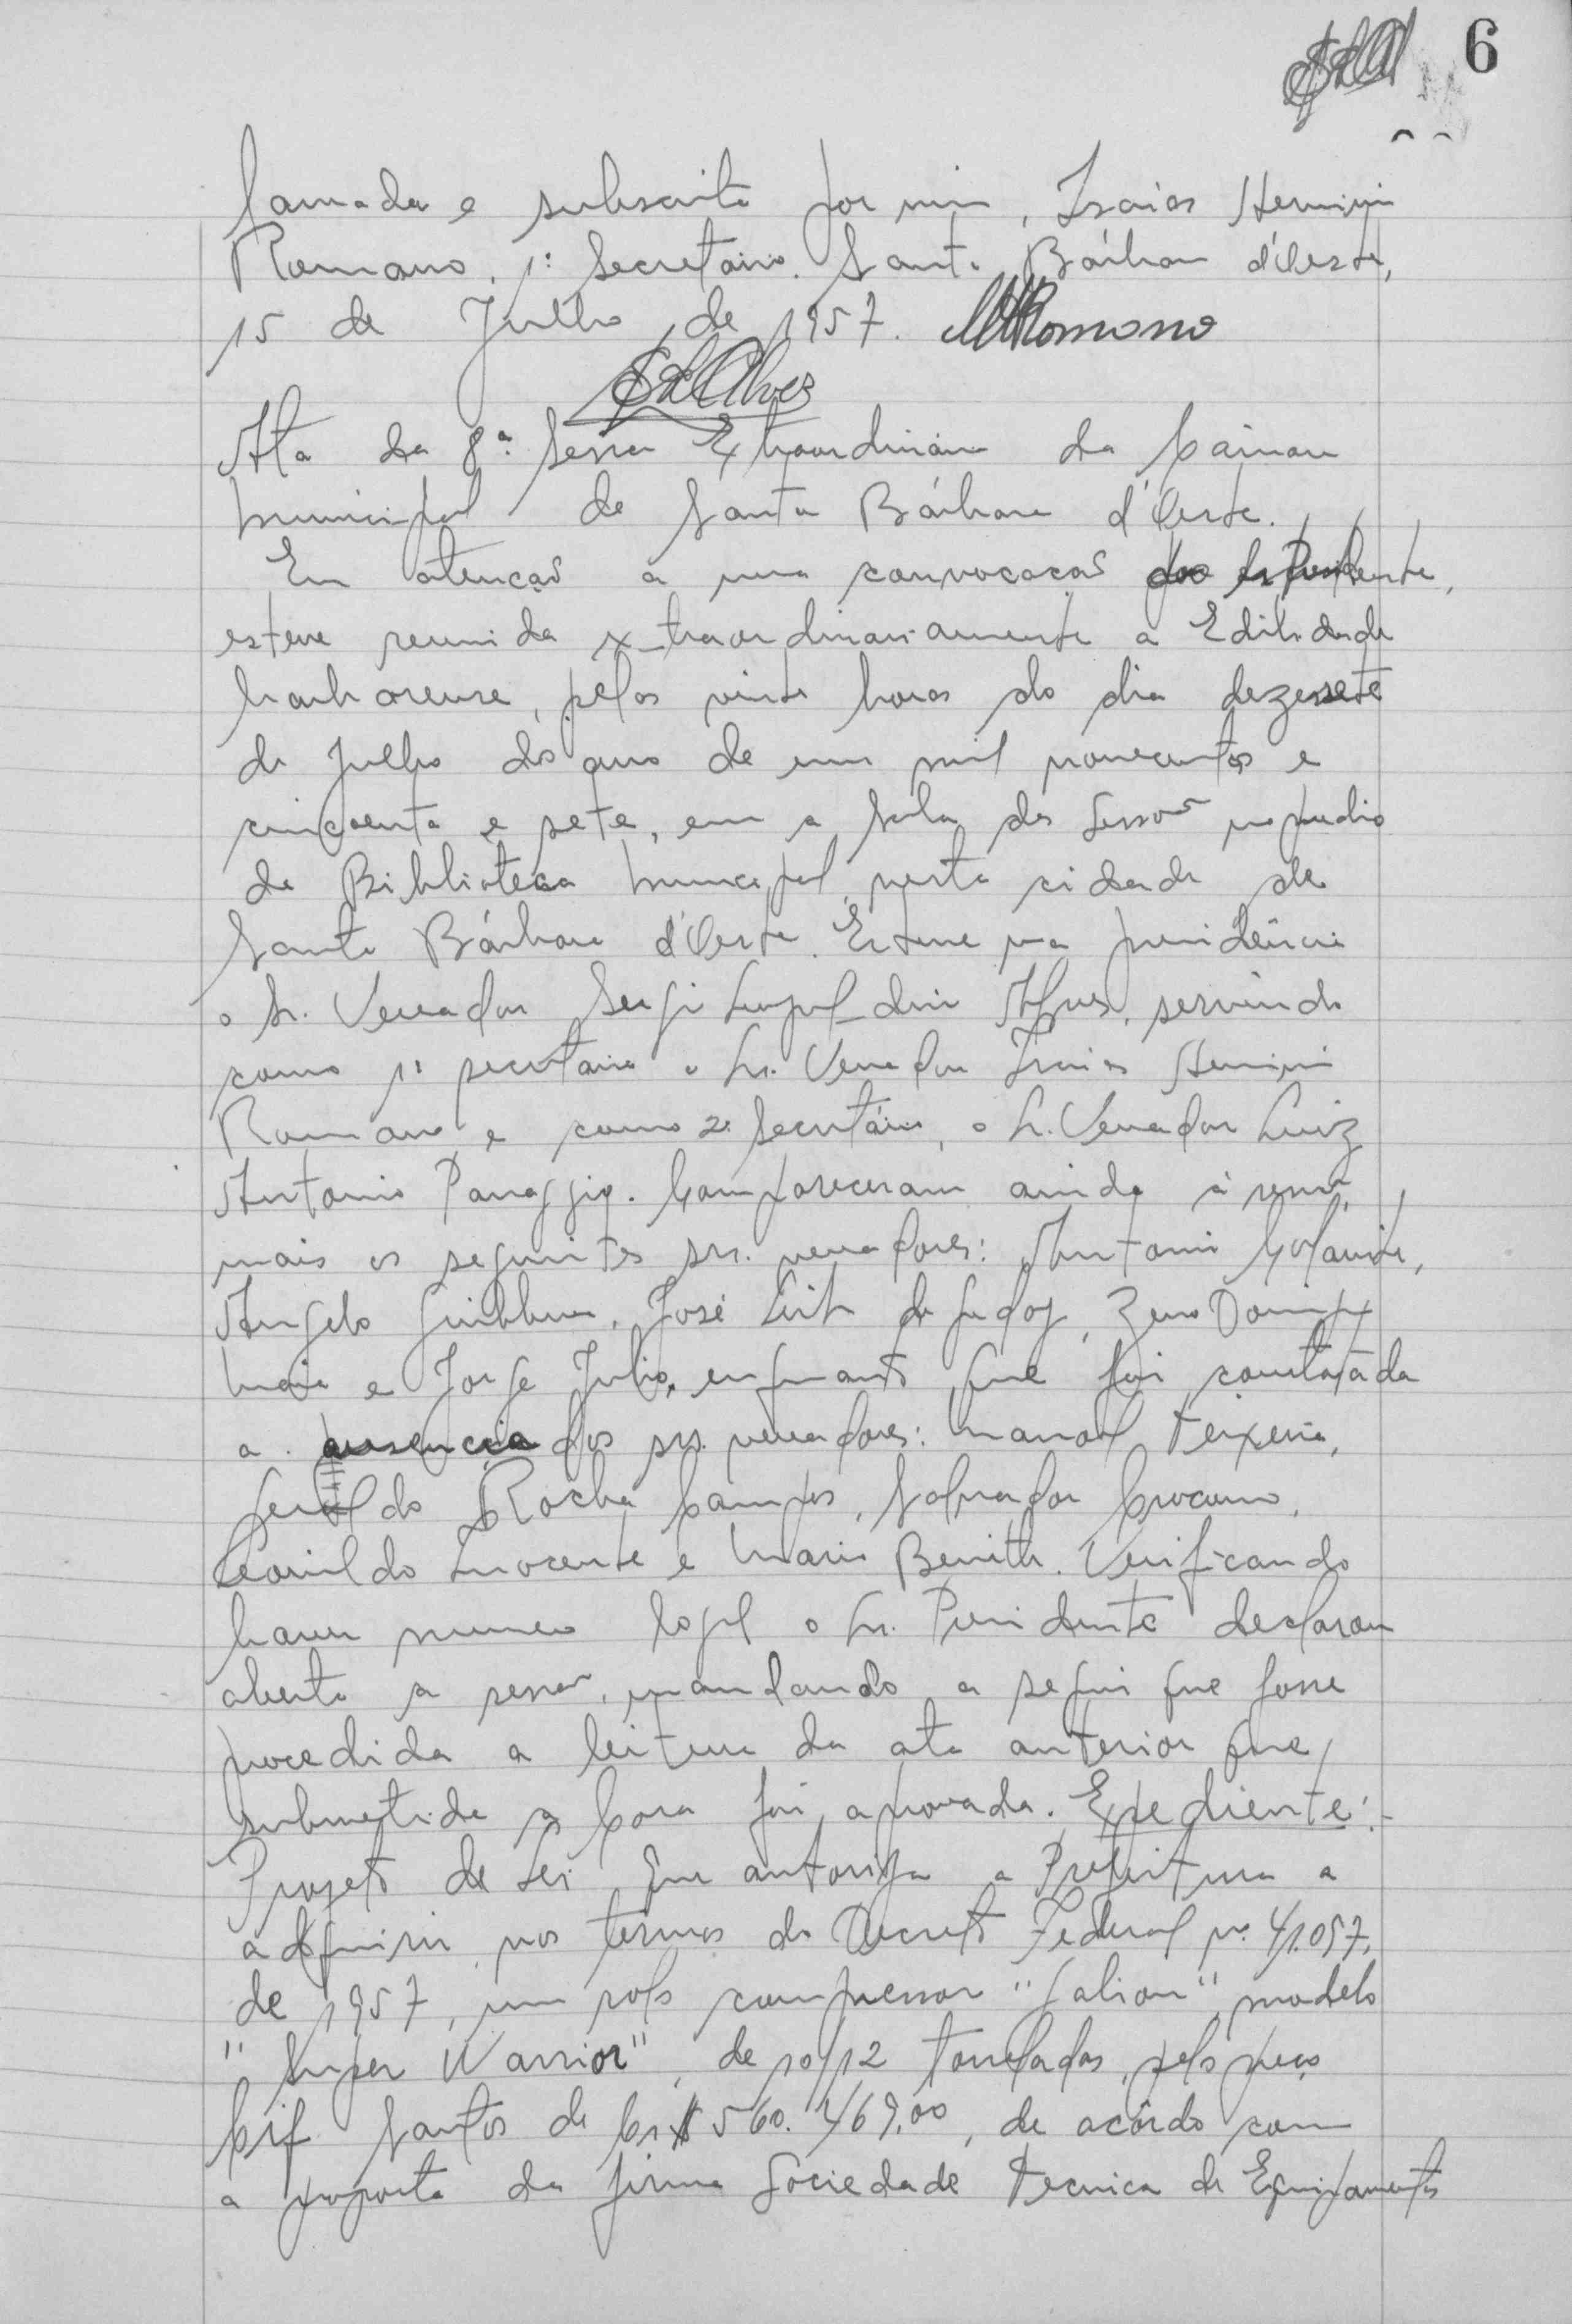 6
lamada e subscrita por mim, Isaias Herminio
Romano, 1º Secretário. Santa Bárbara d'Oeste,
15 de Julho de 1957. Romano
Alves
Ata da 8ª Sessão Extraordinária da Câmara
Municipal de Santa Bárbara d'Oeste.
Em atenção a uma convocação do Presidente,
esteve reunida extraordinariamente a Edilidade
barbarense, pelas vinte horas do dia dezessete
de Julho do ano de um mil novecentos e
cincoenta e sete, em a Sala das Sessões no prédio
da Biblioteca Municipal, nesta cidade de
Santa Bárbara d'Oeste. Esteve na presidência
o Sr. Vereador Sergio Leopoldino Alves, servindo
como 1º secretário o Sr. Vereador Isaias Herminio
Romano e como 2º Secretário, o Sr. Vereador Luiz
Antonio Panaggio. Compareceram ainda à sessão,
mais os seguintes srs. vereadores: Antonio
Angelo José Leite de Godoy, Zeno Domingos
Maia e Jorge Julio, enquanto que foi constatada
a ausencia dos srs. vereadores: Manoel Teixeira,
Geraldo Rocha Campos, Salvador
Leonildo Inocente e Mario Verificando
haver numero legal o Sr. Presidente declarou
aberta a sessão, mandando a seguir que fosse
procedida a leitura da ata anterior que,
submetida a Casa foi aprovada. Expediente:-
Projeto de Lei que autoriza a Prefeitura a
adquirir nos termos do Decreto Federal nº 41.057,
de 1957, um rolo compressor "Galion", modelo
"Super Warrior", de 10/12 toneladas, pelo preço
Cif Santos de Cr$ 560.469,00, de acôrdo com
a proposta da firma Sociedade Tecnica de Equipamentos